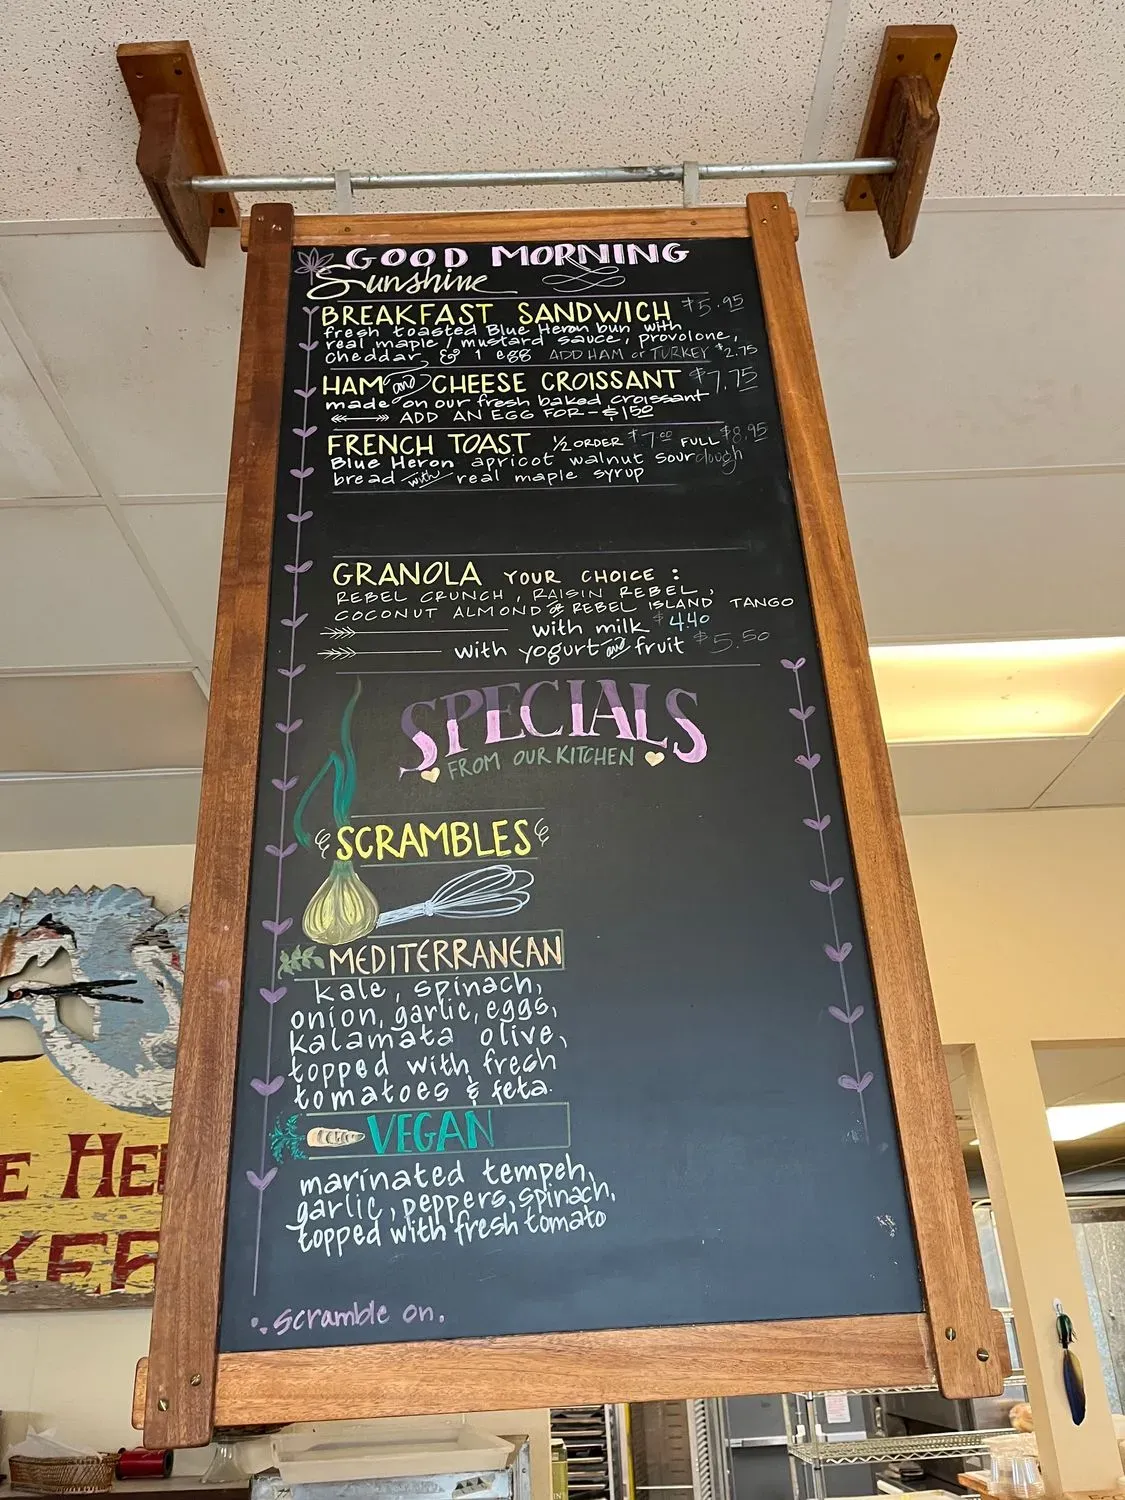 GOOD MORNING
Sunshine
BREAKFAST SANDWICH $5.95
fresh toasted Blue Heron bun with
real maple / mustard sauce, provolone,
cheddar, & 1 egg ADD HAM or TURKEY $2.75
HAM and CHEESE CROISSANT $7.75
made on our fresh baked croissant
ADD AN EGG FOR - $1.50
FRENCH TOAST ½ ORDER $7.00 FULL $8.95
Blue Heron apricot walnut sourdough
bread with real maple syrup
GRANOLA YOUR CHOICE :
REBEL CRUNCH, RAISIN REBEL,
COCONUT ALMOND or REBEL ISLAND TANGO
with milk $4.40
with yogurt and fruit $5.50
SPECIALS
FROM OUR KITCHEN
SCRAMBLES
MEDITERRANEAN
kale, spinach,
onion, garlic, eggs,
kalamata olive,
topped with fresh
tomatoes & feta.
VEGAN
marinated tempeh,
garlic, peppers, spinach,
topped with fresh tomato
scramble on.
E HE
KER